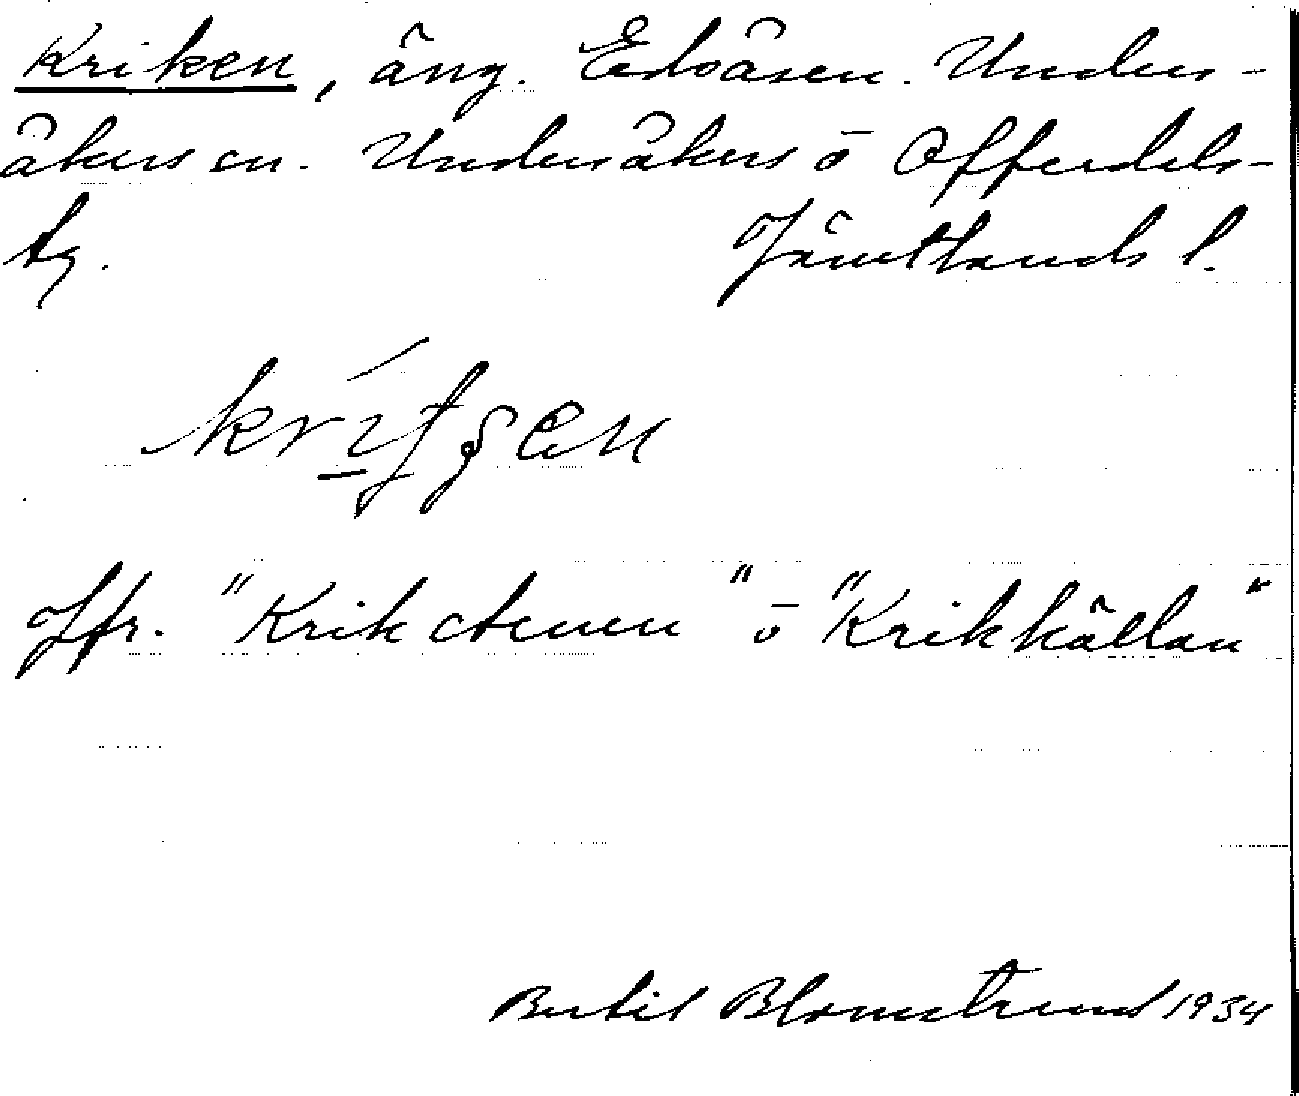 Kriken, äng. Edsåsen. Unders-
åkers sn. Undersåkers o Offerdals-
tg. Jämtlands l.
Jfr. "Kriksstenen" o "Krikkällan"
Bertil Blomstrand 1934